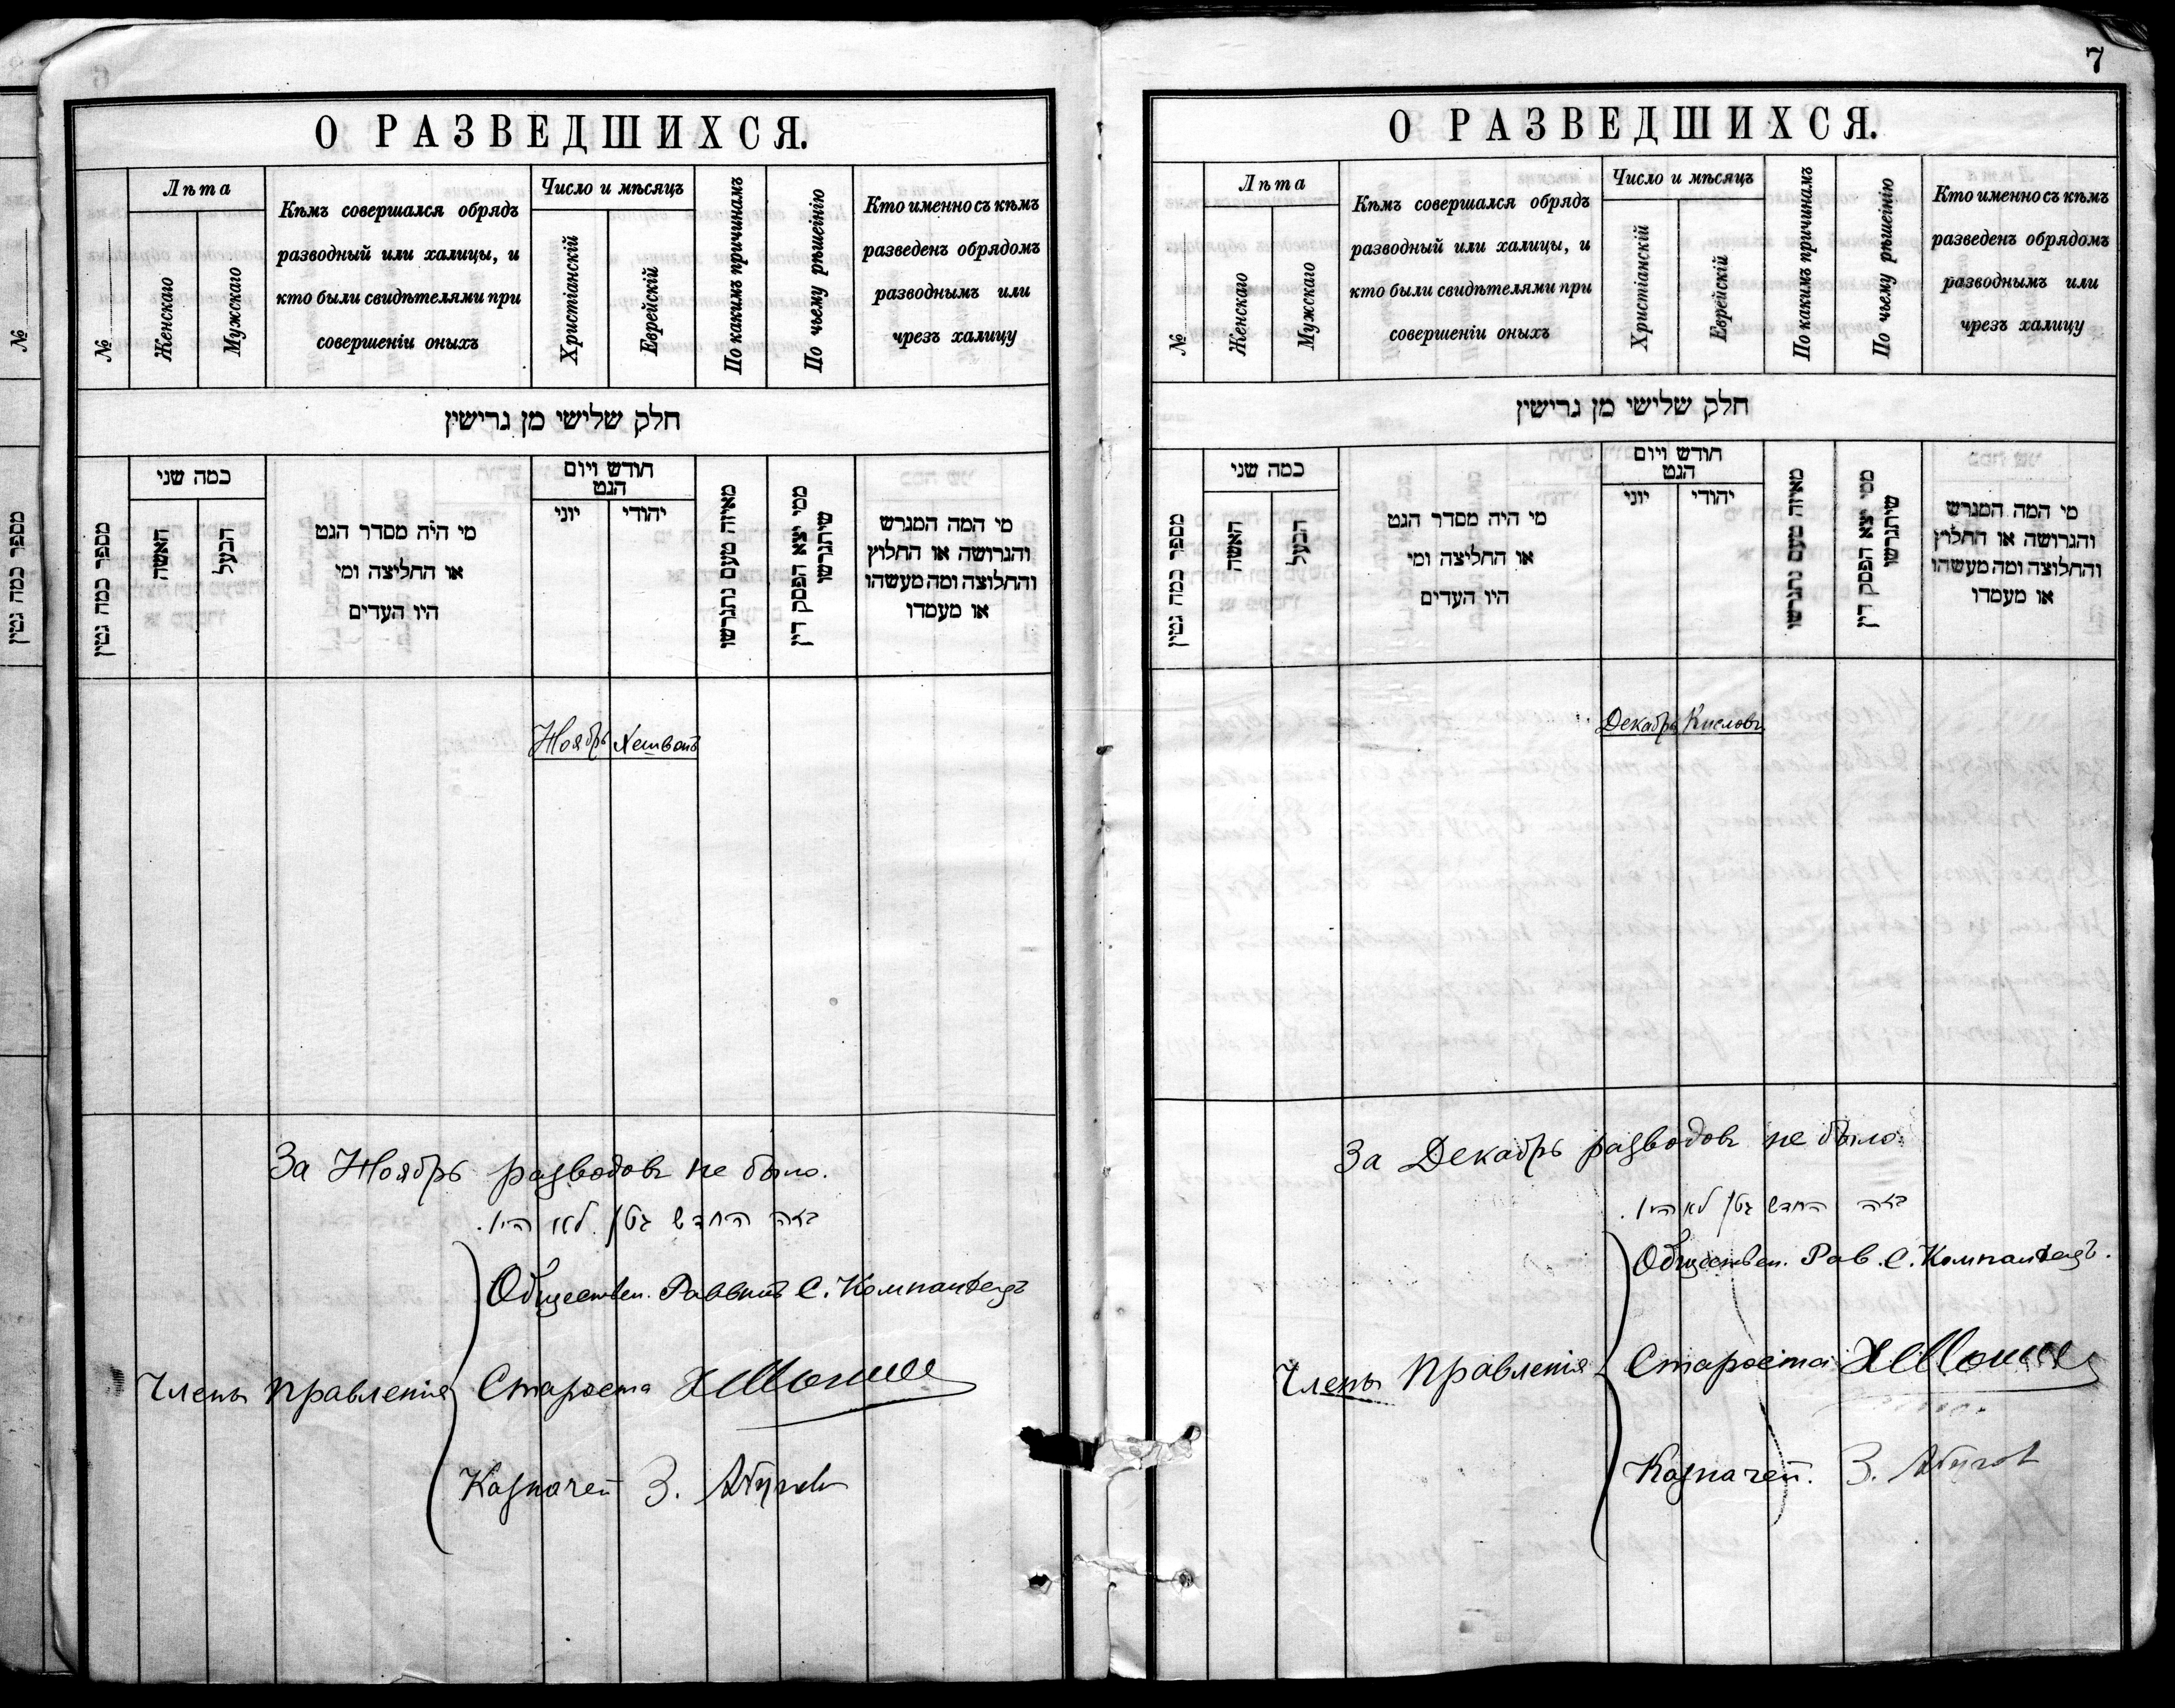 О РАЗВЕДШИХСЯ.
№
Лѣта
Женскаго
Мужскаго
Кѣмъ совершался обрядъ
разводный или халицы, и
кто были свидѣтелями при
совершеніи оныхъ
Число и мѣсяцъ
Христіанскій
Еврейскій
По какимъ причинамъ
По чьему рѣшеінію
Кто именно съ кѣмъ
разведенъ обрядомъ
разводнымъ или
чрезъ халицу
חלק שלישי מן גרישין
מספר כמה גטין
כמה שני
האשה
הבעל
מי היה מסדר הגט
או החליצה ומי
היו העדים
חודש ויום
הגט
יוני
יהודי
מאיזה טעם נתגרשו
ממי יצא הפסק דין
שיתגרשו
מי המה המגרש
והגרושה או החלוץ
והחלוצה ומה מעשהו
או מעמדו
Ноябрь Хешвонъ
За Ноябрь разводовъ не было.
בזה החדש גטין לא היו.
Обществен. Раввинъ С. Компанѣецъ
Члены Правленія
Староста
Казначей З.
7
О РАЗВЕДШИХСЯ.
№
Лѣта
Женскаго
Мужскаго
Кѣмъ совершался обрядъ
разводный или халицы, и
кто были свидѣтелями при
совершеніи оныхъ
Число и мѣсяцъ
Христіанскій
Еврейскій
По какимъ причинамъ
По чьему рѣшеінію
Кто именно съ кѣмъ
разведенъ обрядомъ
разводнымъ или
чрезъ халицу
חלק שלישי מן גרישין
מספר כמה גטין
כמה שני
האשה
הבעל
מי היה מסדר הגט
או החליצה ומי
היו העדים
חודש ויום
הגט
יוני
יהודי
מאיזה טעם נתגרשו
ממי יצא הפסק דין
שיתגרשו
מי המה המגרש
והגרושה או החלוץ
והחלוצה ומה מעשהו
או מעמדו
Декабрь Кисловъ
За Декабрь разводовъ не было.
בזה החדש גטין לא היו.
Обществен. Рав. С. Компанѣецъ.
Члены Правленія
Староста
Казначей. З.
№
מספר כמה גטין